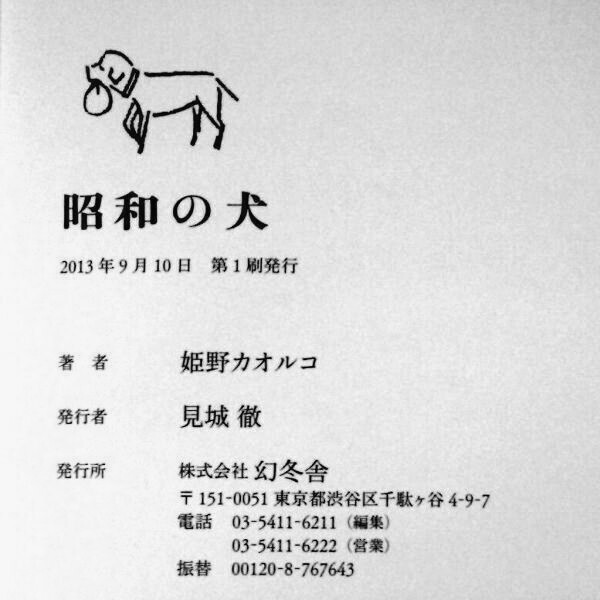 昭和の犬
2013年9月10日　第1刷発行
著　者　姫野カオルコ
発行者　見城 徹
発行所　株式会社 幻冬舎
〒151-0051 東京都渋谷区千駄ヶ谷 4-9-7
電話　03-5411-6211（編集）
03-5411-6222（営業）
振替　00120-8-767643